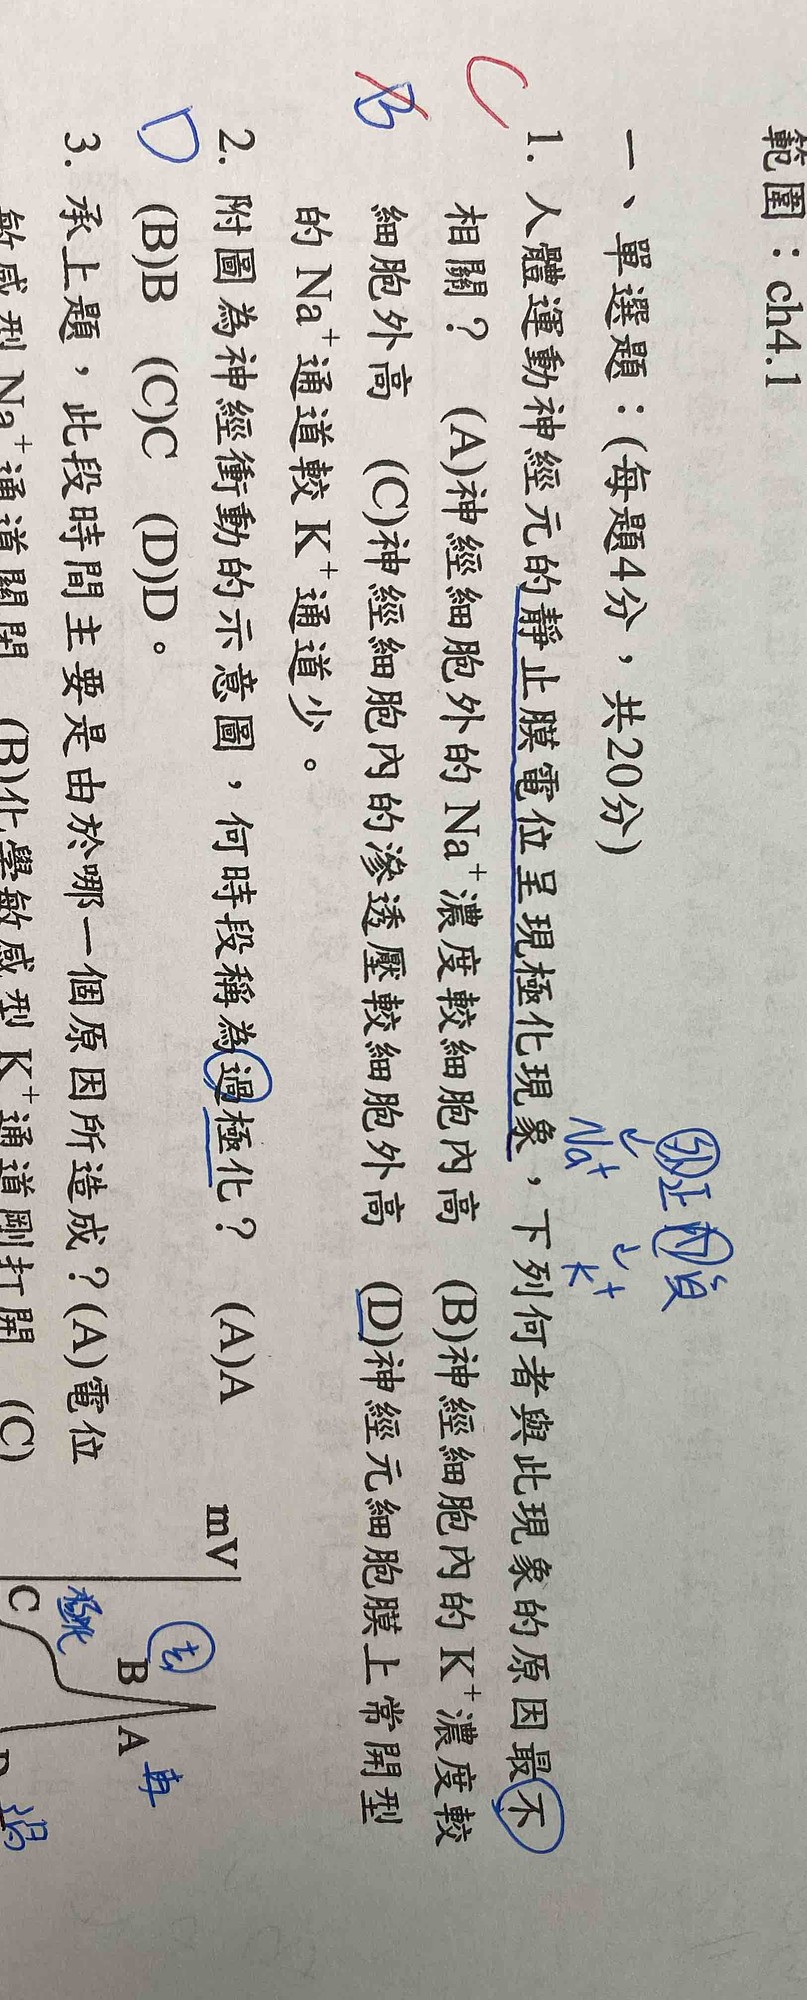 範圍：ch4.1
一、單選題：(每題4分，共20分)
外正內負
Na⁺ K⁺
C
B
1. 人體運動神經元的靜止膜電位呈現極化現象，下列何者與此現象的原因最不
相關？ (A)神經細胞外的 Na⁺濃度較細胞內高 (B)神經細胞內的 K⁺濃度較
細胞外高 (C)神經細胞內的滲透壓較細胞外高 (D)神經元細胞膜上常開型
的 Na⁺通道較 K⁺通道少。
D
2. 附圖為神經衝動的示意圖，何時段稱為過極化？ (A)A
(B)B (C)C (D)D。
mV
去
B A 再
極化
C
D 過
3. 承上題，此段時間主要是由於哪一個原因所造成？(A)電位
敏感型 Na⁺通道關閉 (B)化學敏感型 K⁺通道剛打開 (C)